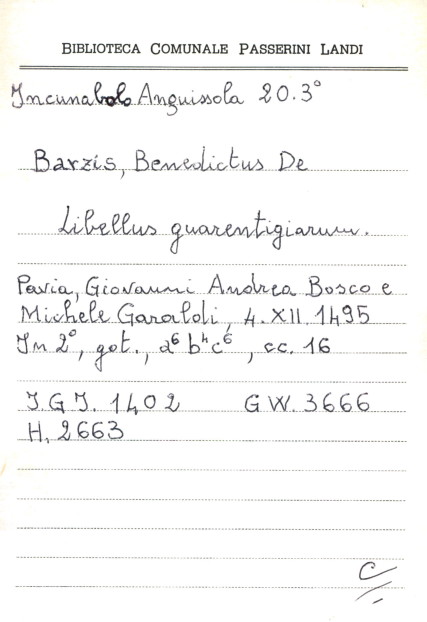 BIBLIOTECA COMUNALE PASSERINI LANDI
Incunabolo Anguissola 20.3°
Barzis, Benedictus De
Libellus guarentigiarum.
Pavia, Giovanni Andrea Bosco e
Michele Garaldi, 4.XII.1495
In 2°, got., a⁶ b⁴ c⁶, cc. 16
I.G.I. 1402 GW. 3666
H. 2663
C